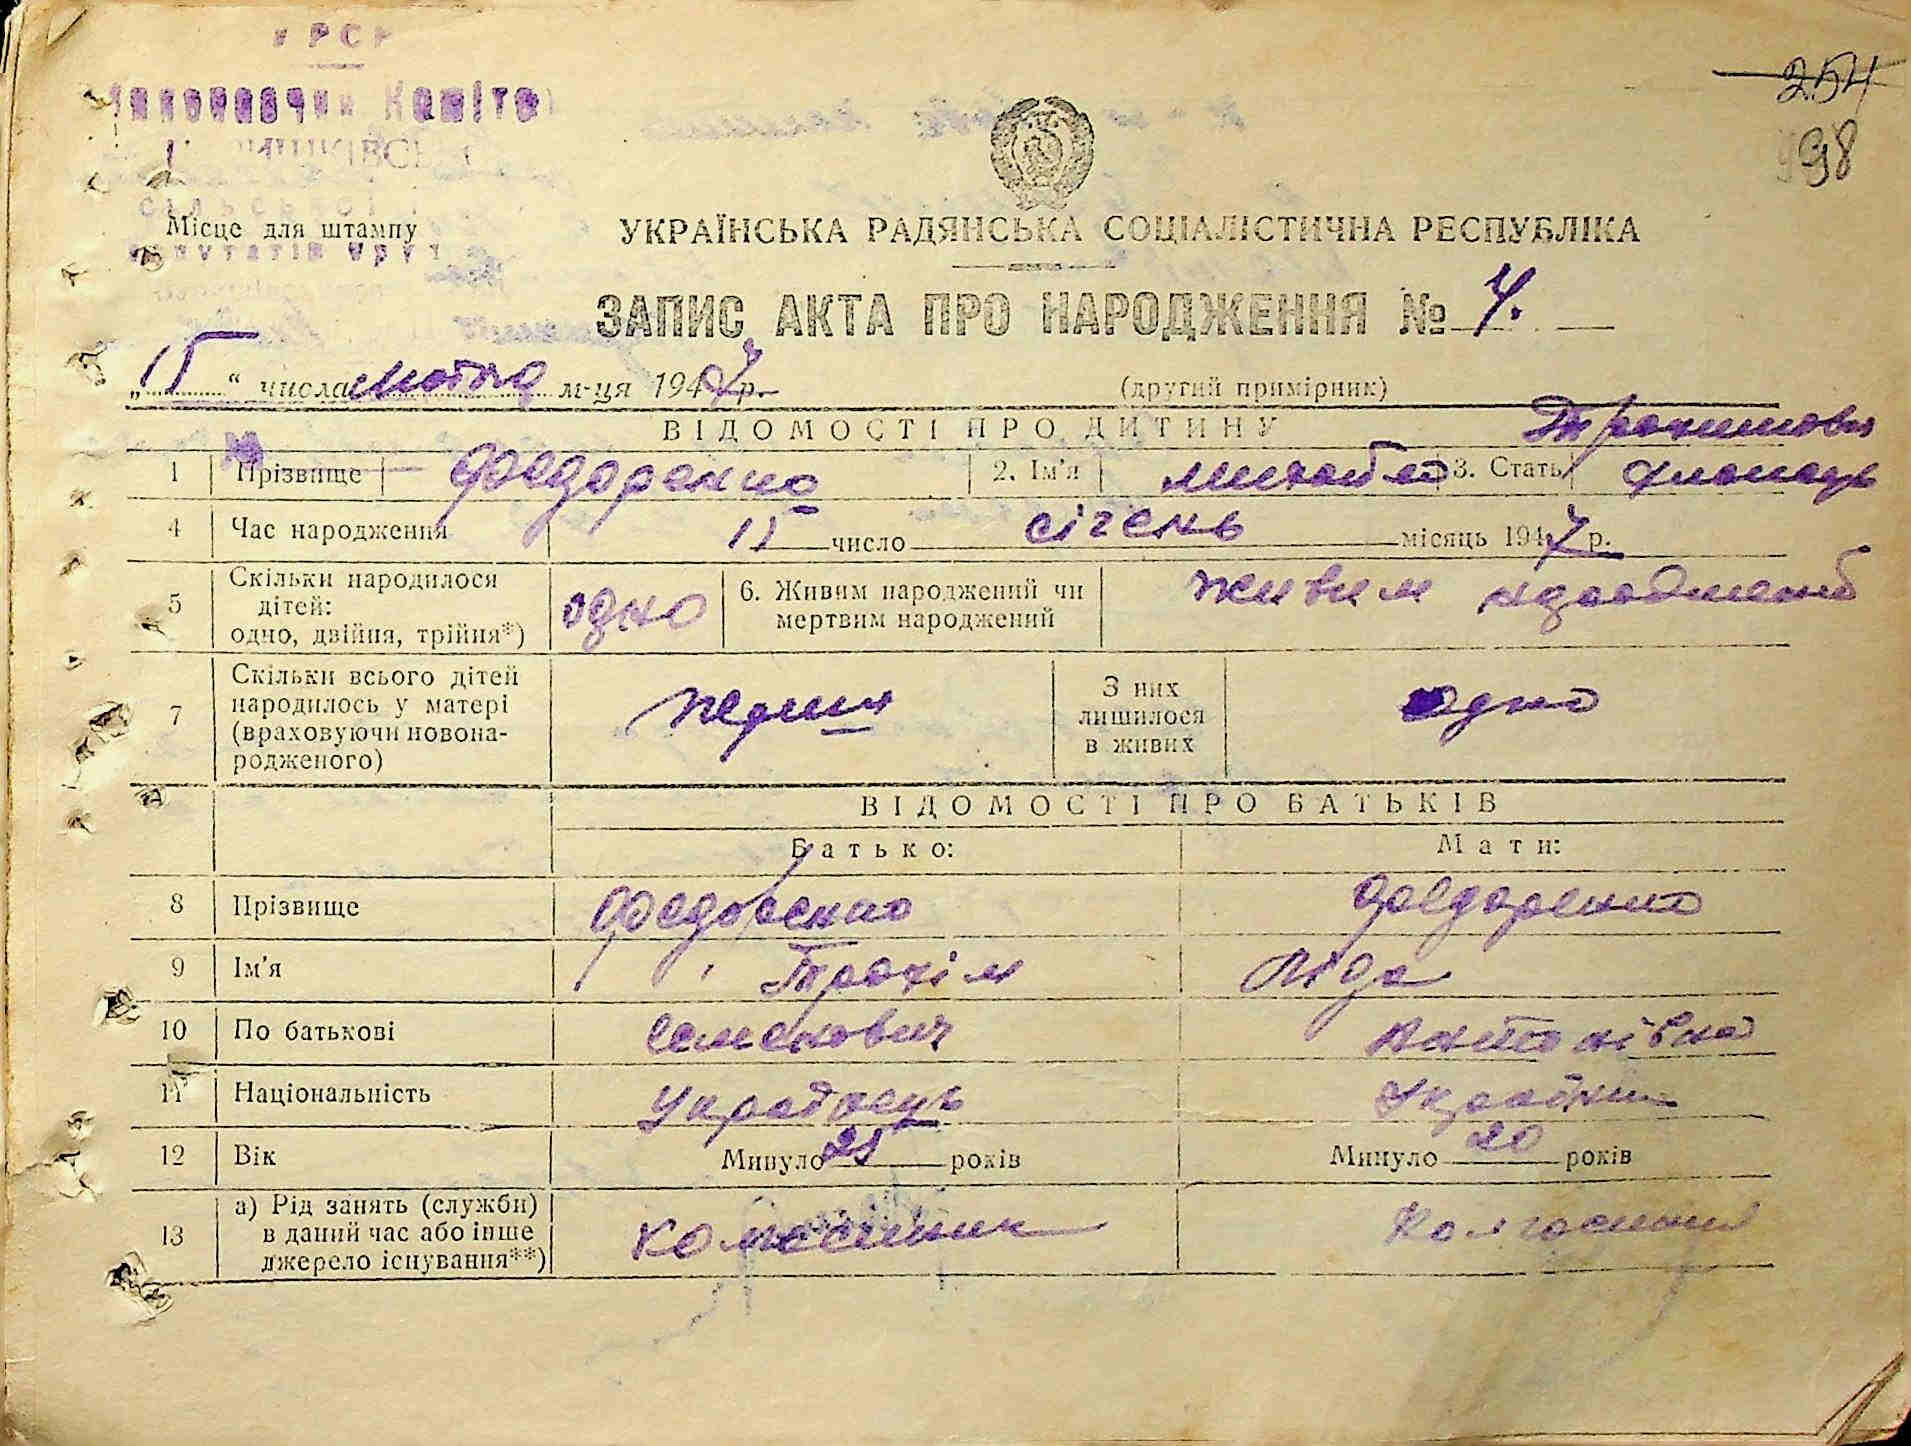 УРСР
Виконавчий Комітет
254
98
сільської
Місце для штампу
депутатів труд
УКРАЇНСЬКА РАДЯНСЬКА СОЦІАЛІСТИЧНА РЕСПУБЛІКА
ЗАПИС АКТА ПРО НАРОДЖЕННЯ № 4.
„15“ числа лютого м-ця 1947 р. (другий примірник)
ВІДОМОСТІ ПРО ДИТИНУ
Трохимович
1 Прізвище Федоренко 2. Ім'я Михайло 3. Стать хлопець
4 Час народження 15 число січень місяць 1947 р.
5 Скільки народилося дітей: одно, двійня, трійня*) одно 6. Живим народжений чи мертвим народжений живим народжений
7 Скільки всього дітей народилось у матері (враховуючи новонародженого) перша З них лишилося в живих одно
ВІДОМОСТІ ПРО БАТЬКІВ
Батько: Мати:
8 Прізвище Федоренко Федоренко
9 Ім'я Трохім Ліда
10 По батькові Семенович Антонівна
11 Національність Українець Українка
12 Вік Минуло 21 років Минуло 20 років
13 а) Рід занять (служби) в даний час або інше джерело існування**) колгоспник Колгоспниця